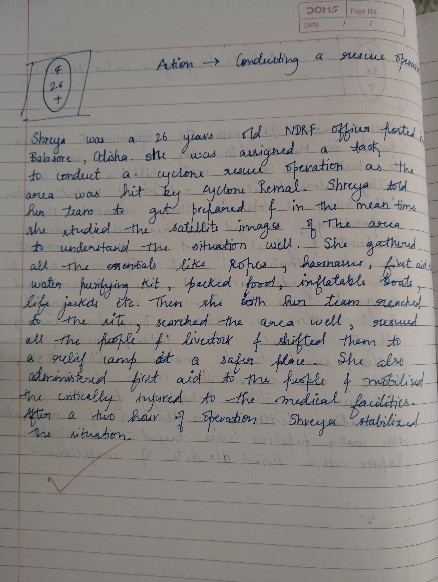 DOMS
Page No.
Date / /
Action → Conducting a rescue operation
F
26
+
Shreya was a 26 years old NDRF officer posted in
Balasore, Odisha. She was assigned a task
to conduct a cyclone rescue operation as the
area was hit by cyclone Remal. Shreya told
her team to get prepared & in the mean time
she studied the satellite images of the area
to understand the situation well. She gathered
all the essentials like Ropes, first aid,
water purifying kit, packed food, inflatable boats,
life etc. Then she her team reached
to the site, searched the area well, rescued
all the people & livestock & shifted them to
a relief camp at a safer place. She also
administered first aid to the people & mobilised
the critically injured to the medical facilities.
After a two hour of operation Shreya stabilized
the situation.